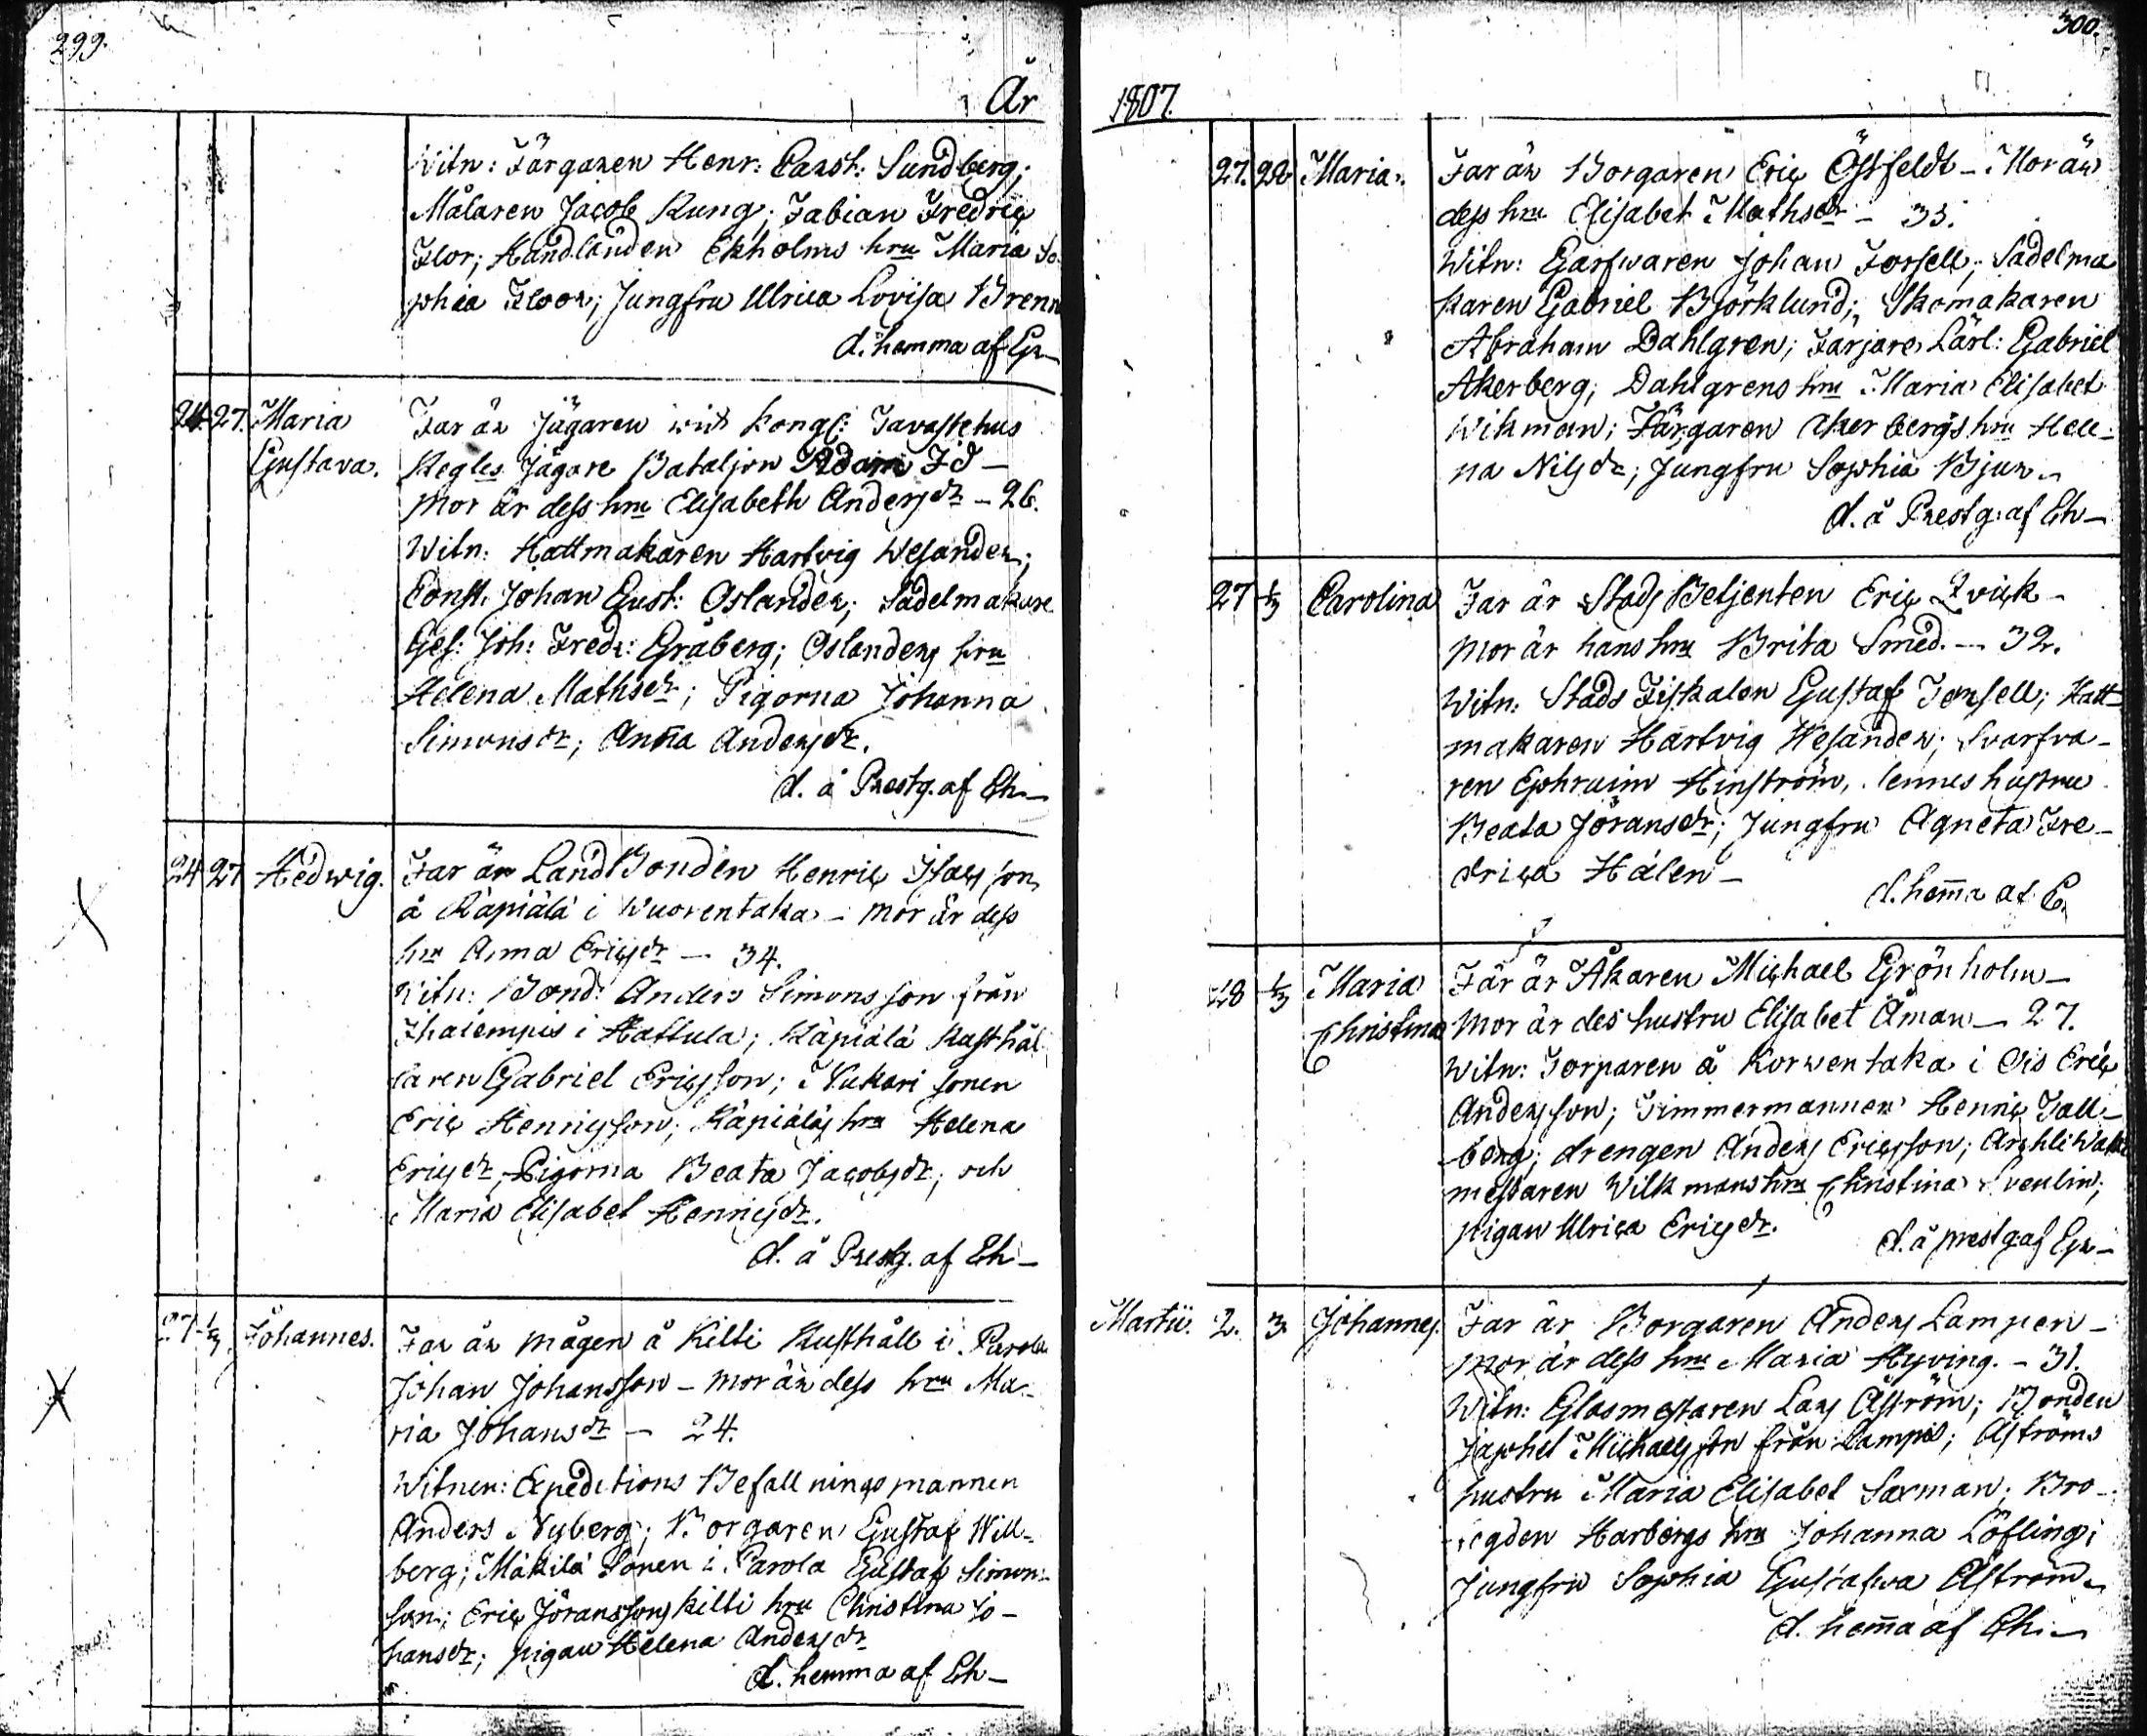 299.
År
Witn: Färgaren Henr: Carst: Sundberg;
Målaren Jacob Kung; Fabian Fredric
Flor; Handlanden Ekholms hru Maria So
phia Floor; Jungfru Ulrica Lovisa Brenn
d. hemma af Gr
24. 27. Maria Far är Jägaren wid Kongl: Tavastehus
Gustava. Regtes Jägare Bataljon Adam Id –
Mor är dess hru Elisabeth Andersdr – 26.
Witn: Hattmakaren Hartvig Wesander;
Const. Johan Gust: Oslander; Sadelmakare
Ges: Joh: Fredr: Gråberg; Oslanders hru
Helena Mathsdr; Pigorna Johanna
Simonsdr; Anna Andersdr.
d. å Prestg. af Eh –
24 27 Hedwig. Far är LandBonden Henric Isacsson
å Käpiälä i Wuorentaka – Mor är dess
hru Anna Ericsdr — 34.
Witn: Bond: Anders Simonsson från
Ihalempis i Hattula; Käpiälä Rusthål
laren Gabriel Ericsson; Nukari sonen
Eric Henricsson; Käpiäläs hru Helena
Ericsdr; Pigorna Beata Jacobsdr; och
Maria Elisabet Henricsdr.
d. å Prestg. af Eh –
27 1/3 Johannes. Far är mågen å Kilti Rusthåll i Parola
Johan Johansson – mor är dess hru Ma-
ria Johansdr – 24.
Witnen: Expeditions Befallningsmannen
Anders Nyberg; Borgaren Gustaf Will-
berg; Mäkilä Sonen i Parola Gustaf Simons-
son; Eric Göranssons Kilti hru Christina Jo-
hansdr; pigan Helena Andersdr
d. hemma af Eh –
300.
1807.
27. 28. Maria. Far är Borgaren Eric Östfeldt – Mor är
dess hru Elisabet Mathsdr – 33.
Witn: Garfwaren Johan Forsell; Sadelma
karen Gabriel Björklund; Skomakaren
Abraham Dahlgren; Färjare Lärl: Gabriel
Åkerberg; Dahlgrens hru Maria Elisabet
Wikman; Färgaren Åkerbergs hru Hele-
na Nilsdr; Jungfru Sophia Bjur –
d. å Prestg: af Eh –
27 1/3 Carolina Far är Stads Betjenten Eric Qvick –
Mor är hans hru Brita Smed. – 32.
Witn: Stads Fiskalen Gustaf Forsell; Hatt-
makaren Hartvig Wesander; Svarfva-
ren Ephraim Hinström, hennes hustru
Beata Jöransdr; Jungfru Agneta Fre-
drica Hålén –
d. hem̄a af E.
28 1/3 Maria Far är Åkaren Michael Grönholm –
Christina Mor är des hustru Elisabet Åman – 27.
Witn: Torparen å Korwentaka i Ois Eric
Andersson; Timmermannen Henric Tall-
berg; drengen Anders Ericsson; Arkli Wakt
mestaren Wilkmans hru Christina Svenlin;
pigan Ulrica Ericsdr.
d. å prestg af Gr –
Martii. 2. 3. Johannes. Far är Borgaren Anders Lampen –
Mor är dess hru Maria Hyving. – 31.
Witn: Glasmestaren Lars Åström; Bonden
Japhet Michaelsson från Lampis; Åströms
hustru Maria Elisabet Saxman; Bro-
fogden Harbergs hru Johanna Löfling;
Jungfru Sophia Gustafwa Åström –
d. hem̄a af Eh –